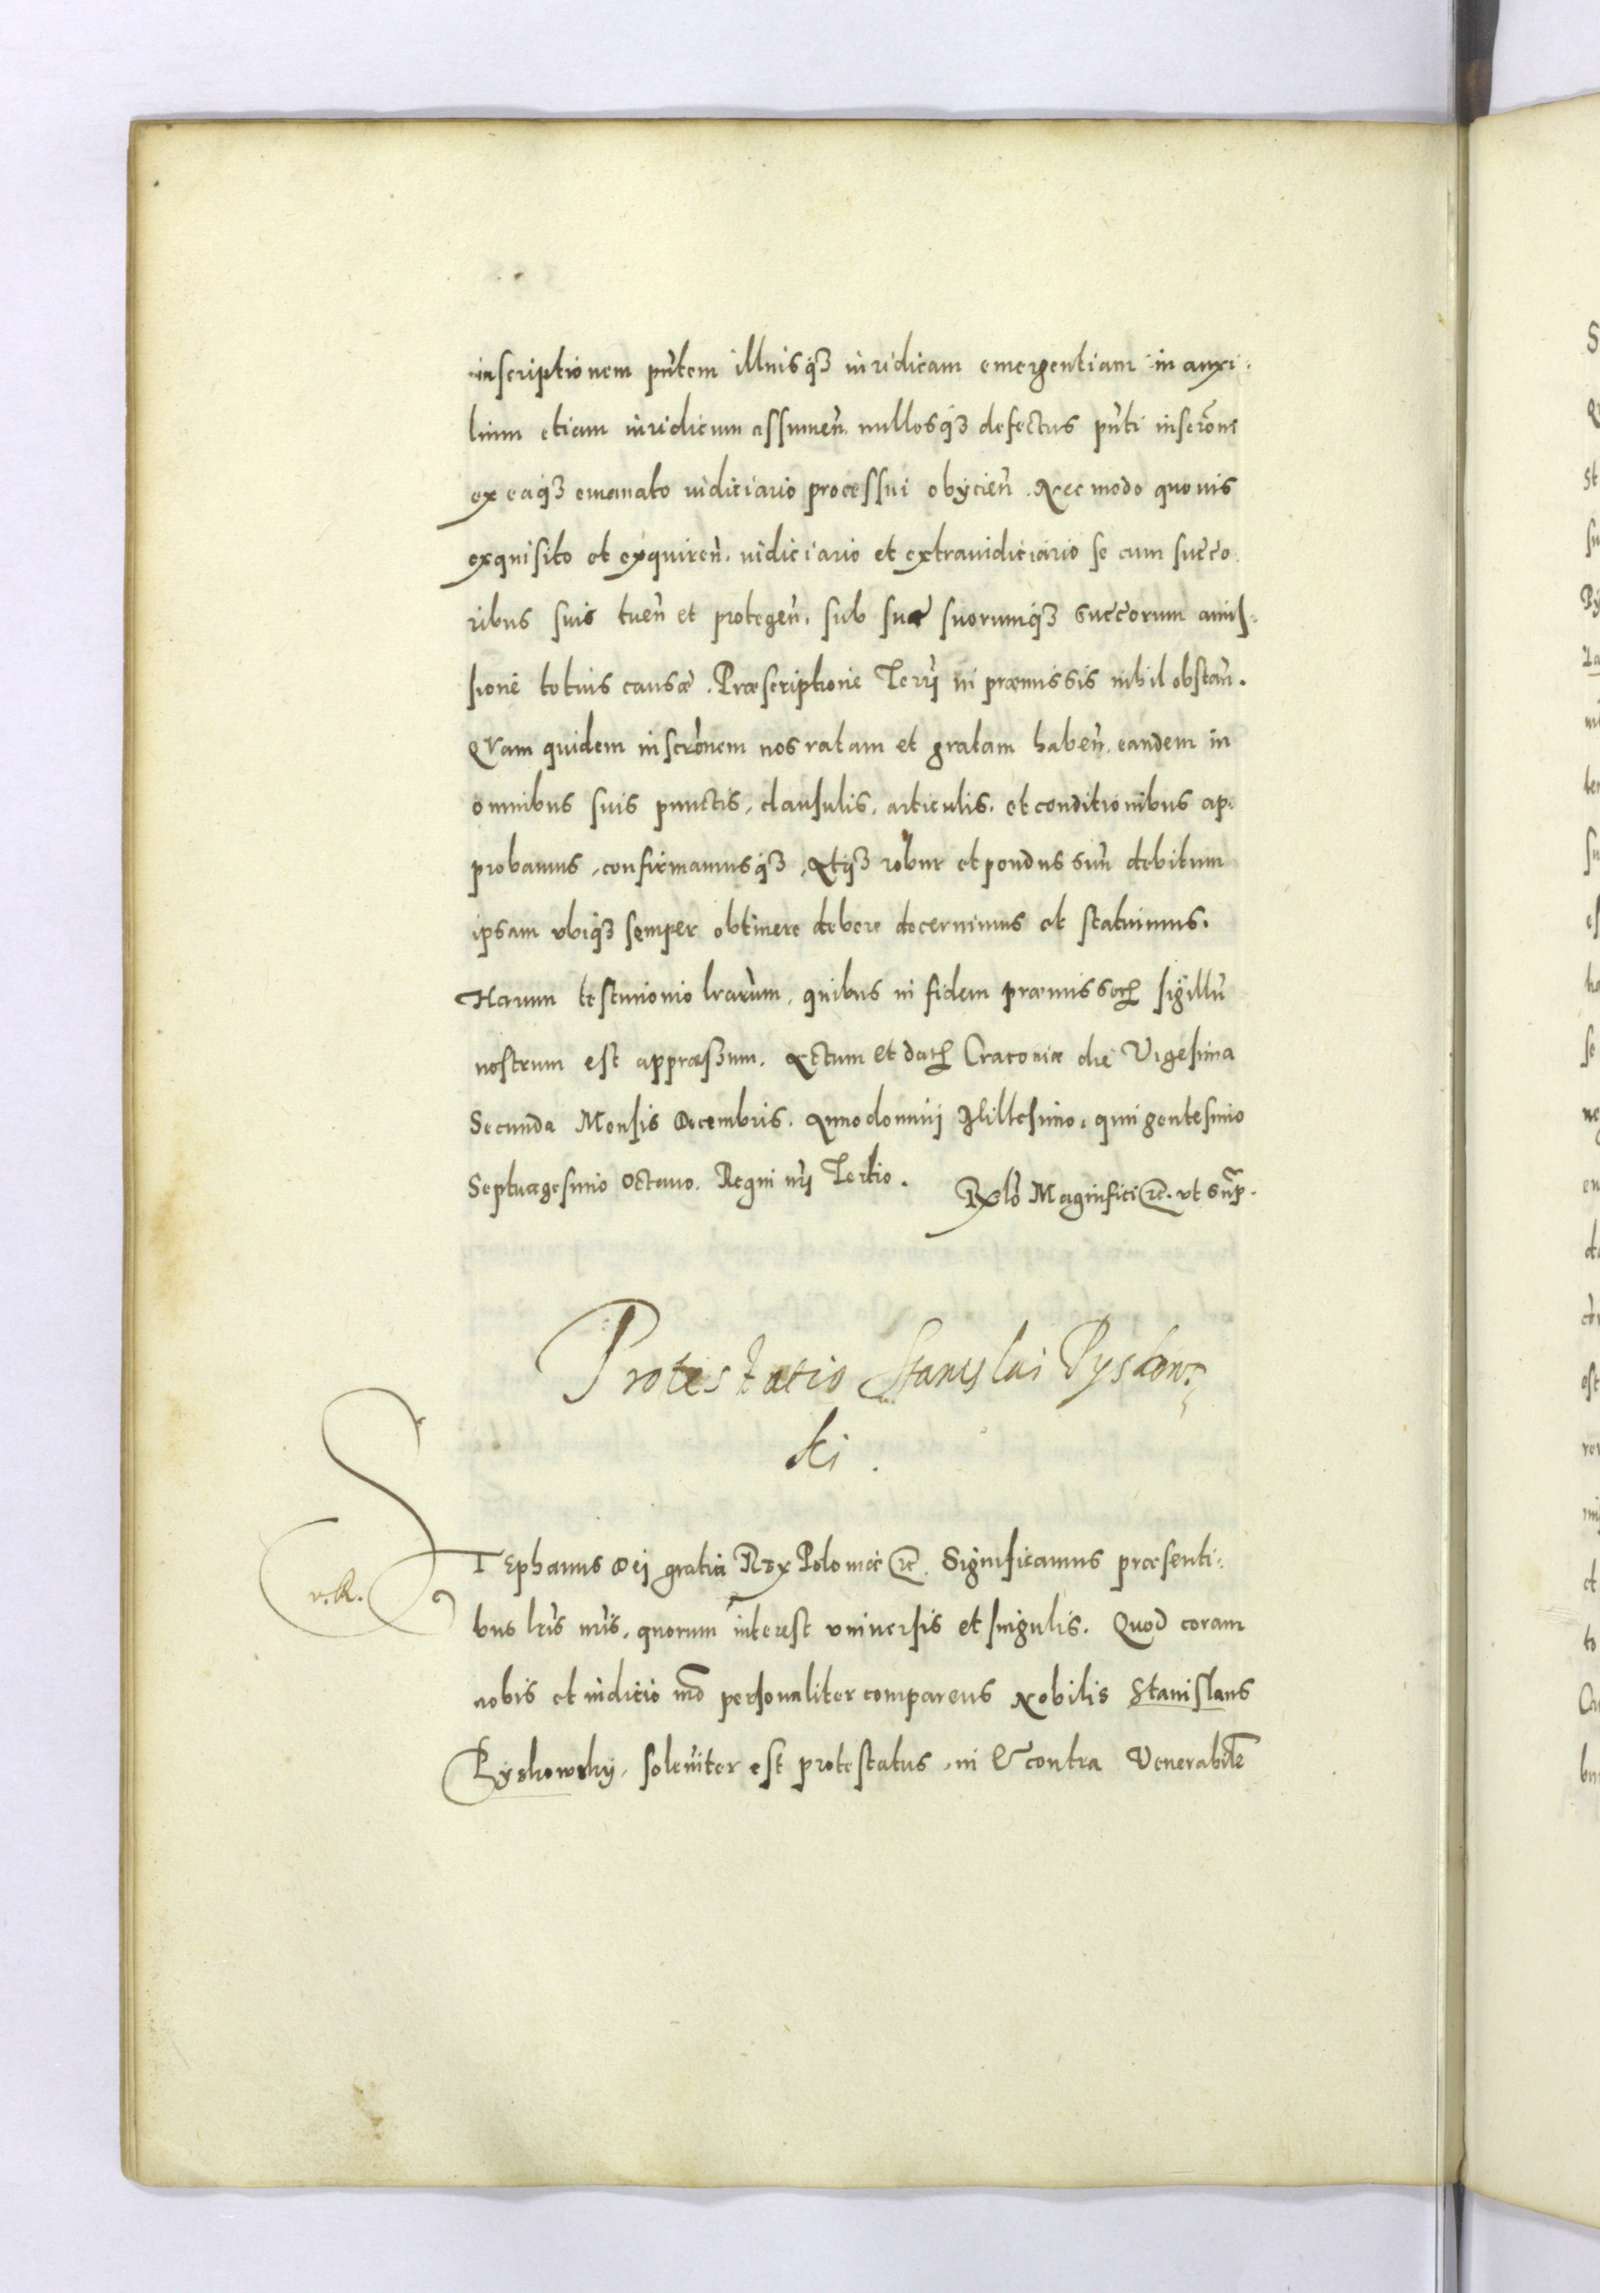 inscriptionem pñtem illiusq3 iuridicam emergentiam in auxi-
lium etiam iuridicum assumeñ. nullosq3 defectus pñti inscr̃one
ex eaq3 emanato iudiciario processui obÿcieñ. Nec modo quouis
exquisito et exquireñ. iudiciario et extraiudiciario se cum succo
ribus suis tueñ et protegeñ. sub sua suorumq3 succorum amis-
sione totius causæ. Præscriptione Terrij in præmissis nihil obstañ.
QVam quidem inscr̃onem nos ratam et gratam habeñ. eandem in
omnibus suis punctis, clausulis, articulis, et conditionibus ap-
probamus, confirmamusq3, Atq3 robur et pondus suũ debitum
ipsam vbiq3 semper obtinere debere decernimus et statuimus.
Harum testimonio lrarum, quibus in fidem præmissorꝝ sigillũ
nostrum est appræssum. Actum et datꝝ Cracoviæ die Vigesima
Secunda Mensis Decembris. Anno domini Millesimo, quingentesimo
Septuagesimo Octauo. Regni nrĩ Tertio. Rx̃lo Magnifici &c. vt sup̃.
Protestatio Stanislai Pyskow-
ski.
v. R.
STEphanus Dei gratia Rex Poloniæ &c. Significamus præsenti-
bus lrĩs nrĩs, quorum interest vniuersis et singulis. Quod coram
nobis et iudicio nrõ personaliter comparens Nobilis Stanislaus
Pyskowsky, soleñiter est protestatus, in & contra Venerabilẽ